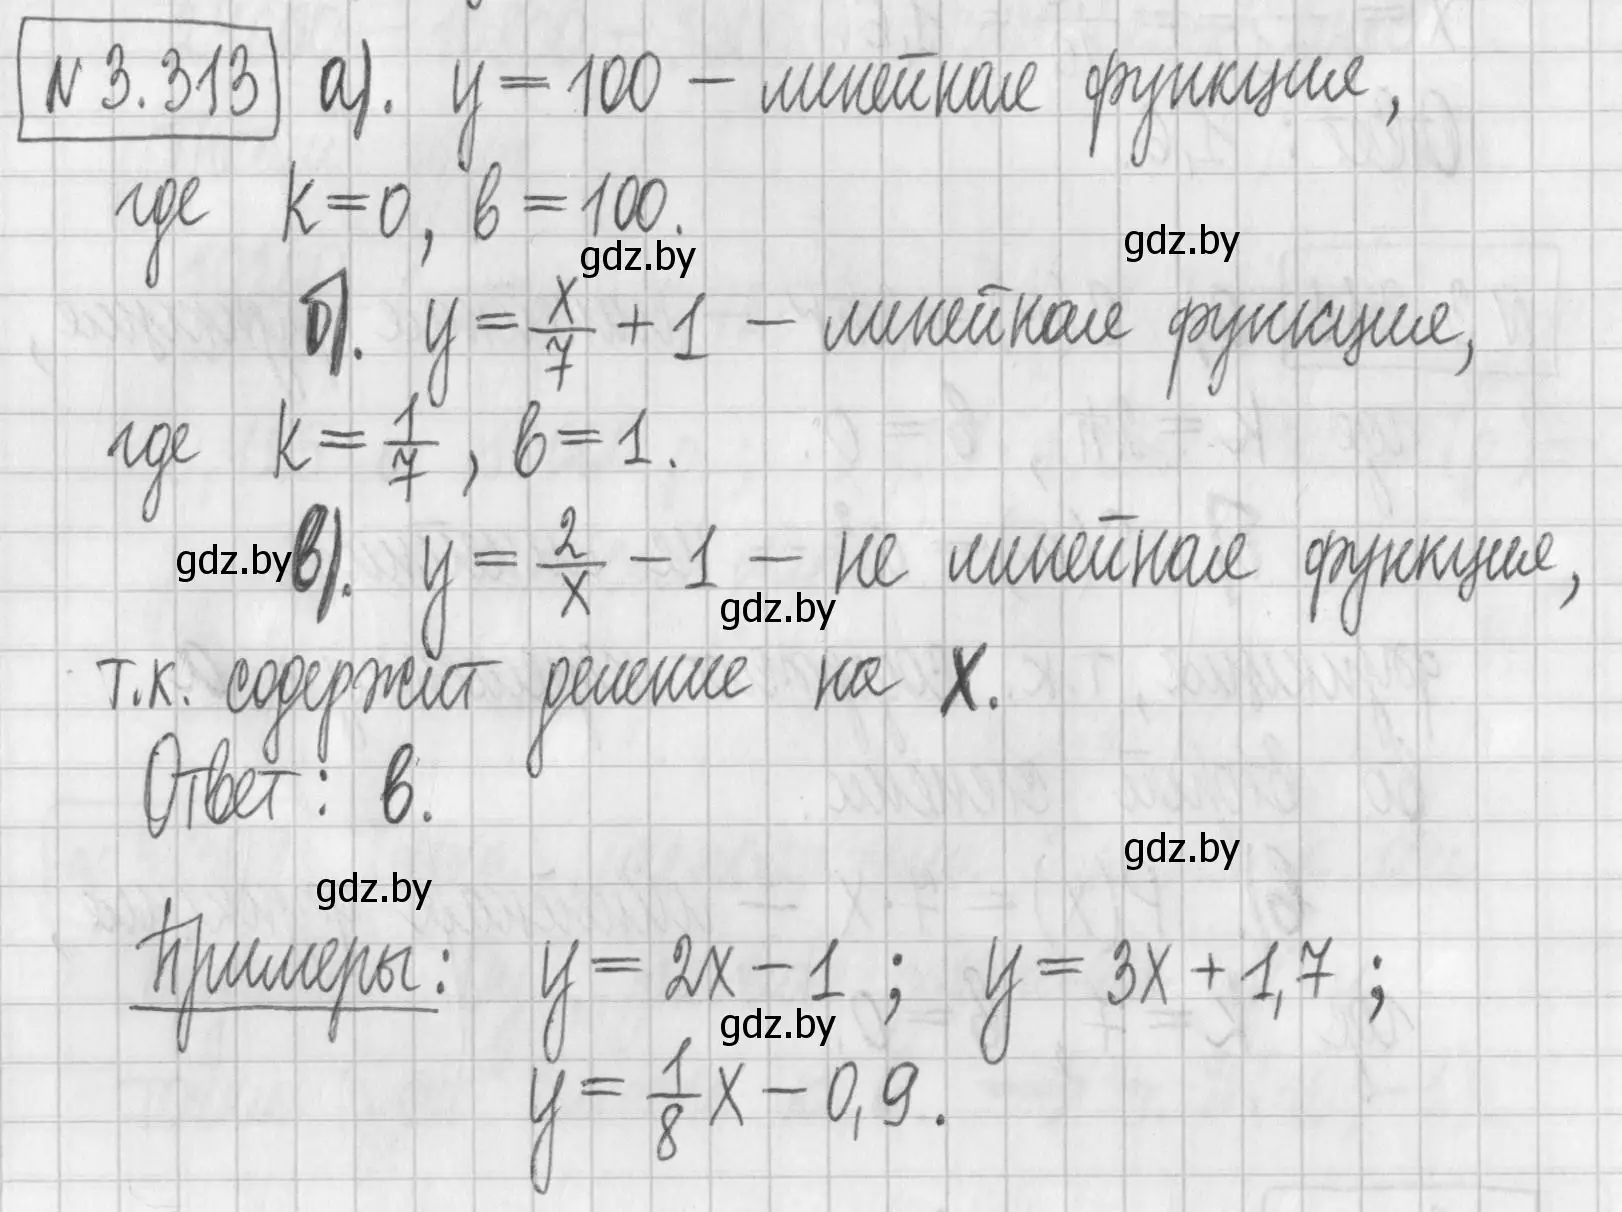 № 3.313 а). y = 100 – линейная функция,
где k = 0, в = 100.
gdz.by
gdz.by
б). y = x/7 + 1 – линейная функция,
где k = 1/7, в = 1.
gdz.by
в). y = 2/x – 1 – не линейная функция,
gdz.by
т.к. содержит деление на х.
Ответ: в.
gdz.by
gdz.by
Примеры: y = 2x – 1 ; y = 3x + 1,7 ;
gdz.by
y = 1/8 x – 0,9.